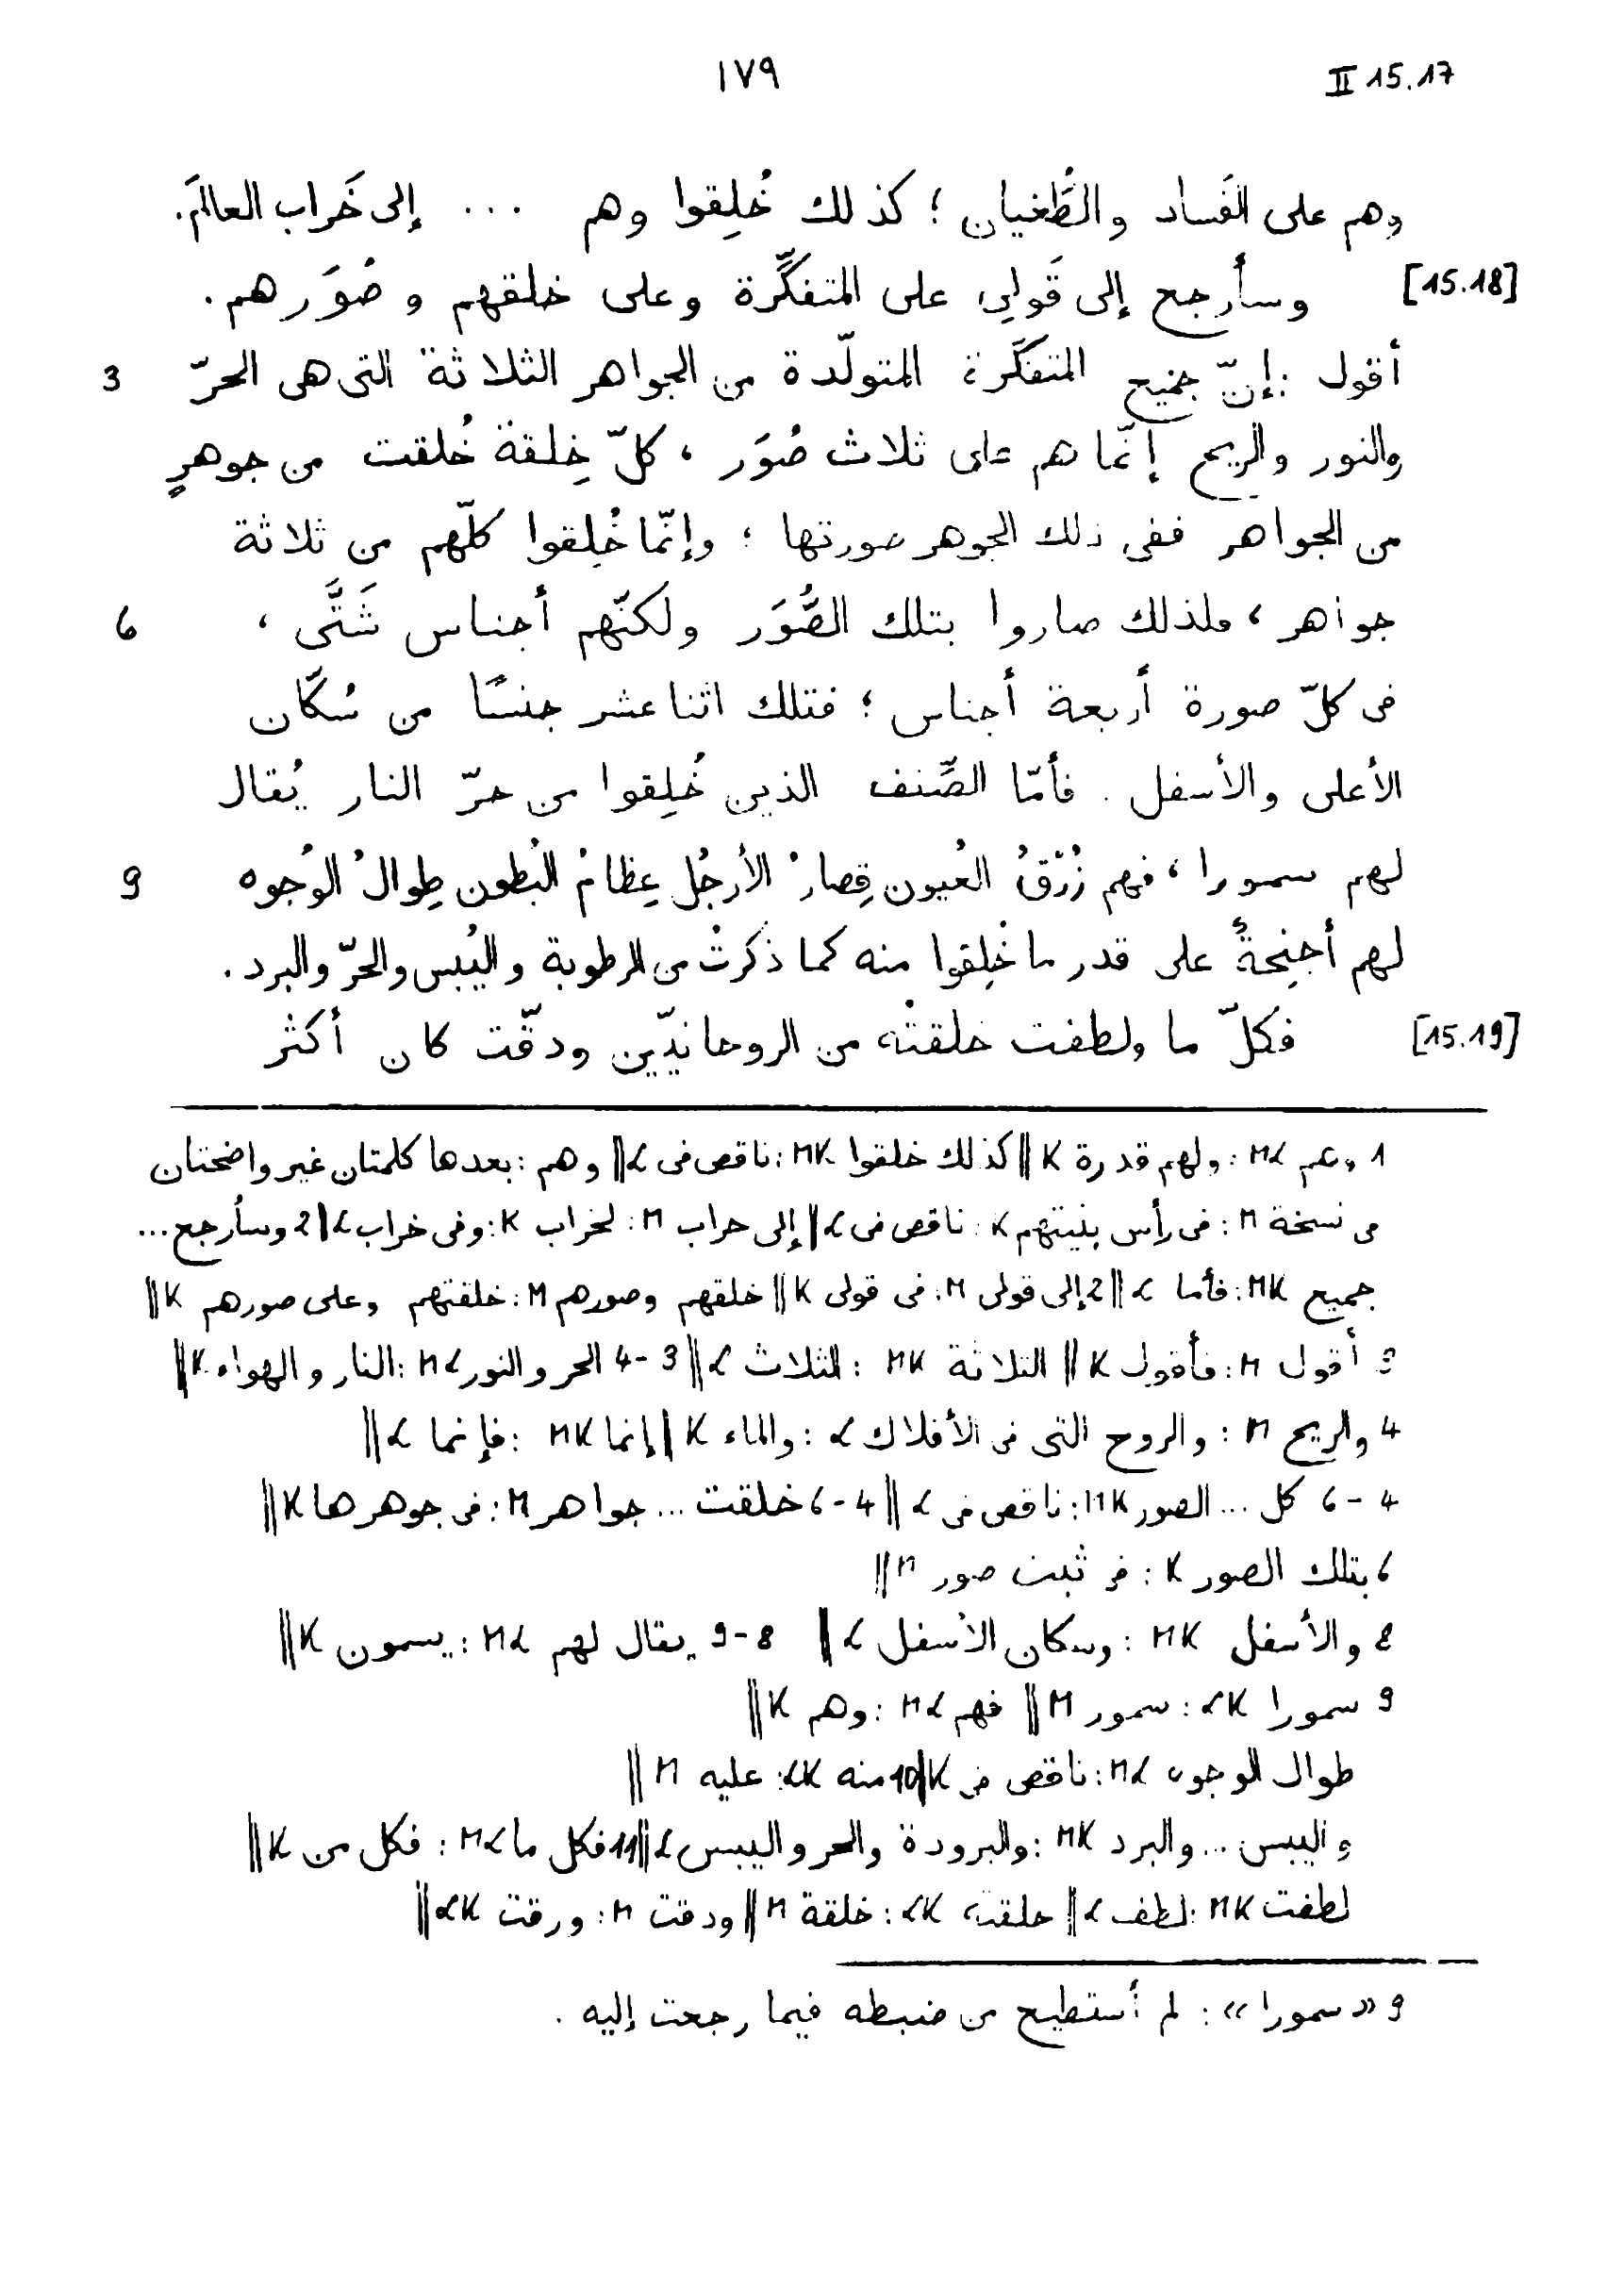 ١٧٩ II 15.17
وهم على الفَساد والطُّغيان ؛ كذلك خُلِقوا وهم ... إلى خَراب العالَم.
[15.18] وسأرجع إلى قَولي على المتفكِّرة وعلى خلقهم وصُوَرهم.
أقول : إنّ جميع المتفكَّرة المتولّدة من الجواهر الثلاثة التى هى الحرّ 3
والنور والريح إنّما هم على ثلاث صُوَر ، كلّ خِلقة خُلقت من جوهرٍ
من الجواهر ففى ذلك الجوهر صورتها ؛ وإنّما خُلِقوا كلّهم من ثلاثة
جواهر ، ولذلك صاروا بتلك الصُّوَر ولكنّهم أجناس شَتَّى ، 6
فى كلّ صورة أربعة أجناس ؛ فتلك اثنا عشر جنسًا من سُكّان
الأعلى والأسفل . فأمّا الصِّنف الذين خُلِقوا من حرّ النار يُقال
لهم سمورا ، فهم زُرْقُ العُيون قِصارُ الأرجُل عِظامُ البُطون طِوالُ الوُجوه 9
لهم أجنِحةٌ على قدر ما خُلِقوا منه كما ذكرتُ من الرطوبة واليُبس والحرّ والبرد .
[15.19] فكلّ ما ولطفت خلقتُه من الروحانيّين ودقّت كان أكثر
1 وهم Mα : ولهم قدرة K || كذلك خلقوا MK : ناقص فى α || وهم : بعدها كلمتان غير واضحتان
فى نسخة M : فى رأس بنيتهم K : ناقص فى α || إلى خراب M : لخراب K : وفى خراب α || 2 وسأرجع ...
جميع MK : فأما α || 2 إلى قولى M : فى قولى K || خلقهم وصورهم M : خلقتهم وعلى صورهم K ||
3 أقول M : فأقول K || الثلاثة MK : الثلاث α || 3-4 الحر والنور Mα : النار والهواء K ||
4 والريح M : والروح التى فى الأفلاك α : والماء K || إنما MK : فإنما α ||
4-6 كل ... الصور MK : ناقص فى α || 4-6 خلقت ... جواهر M : فى جوهرها K ||
6 بتلك الصور K : فى ثبت صور M ||
8 والأسفل MK : وسكان الأسفل α || 8-9 يقال لهم Mα : يسمون K ||
9 سمورا αK : سمور M || فهم Mα : وهم K ||
طوال الوجوه Mα : ناقص فى K || 10 منه αK : عليه M ||
واليبس ... والبرد MK : والبرودة والحر واليبس α || 11 فكل ما Mα : فكل من K ||
لطفت MK : لطف α || خلقته αK : خلقة M || ودقت M : ورقت αK ||
9 «سمورا» : لم أستطيع من ضبطه فيما رجعت إليه .